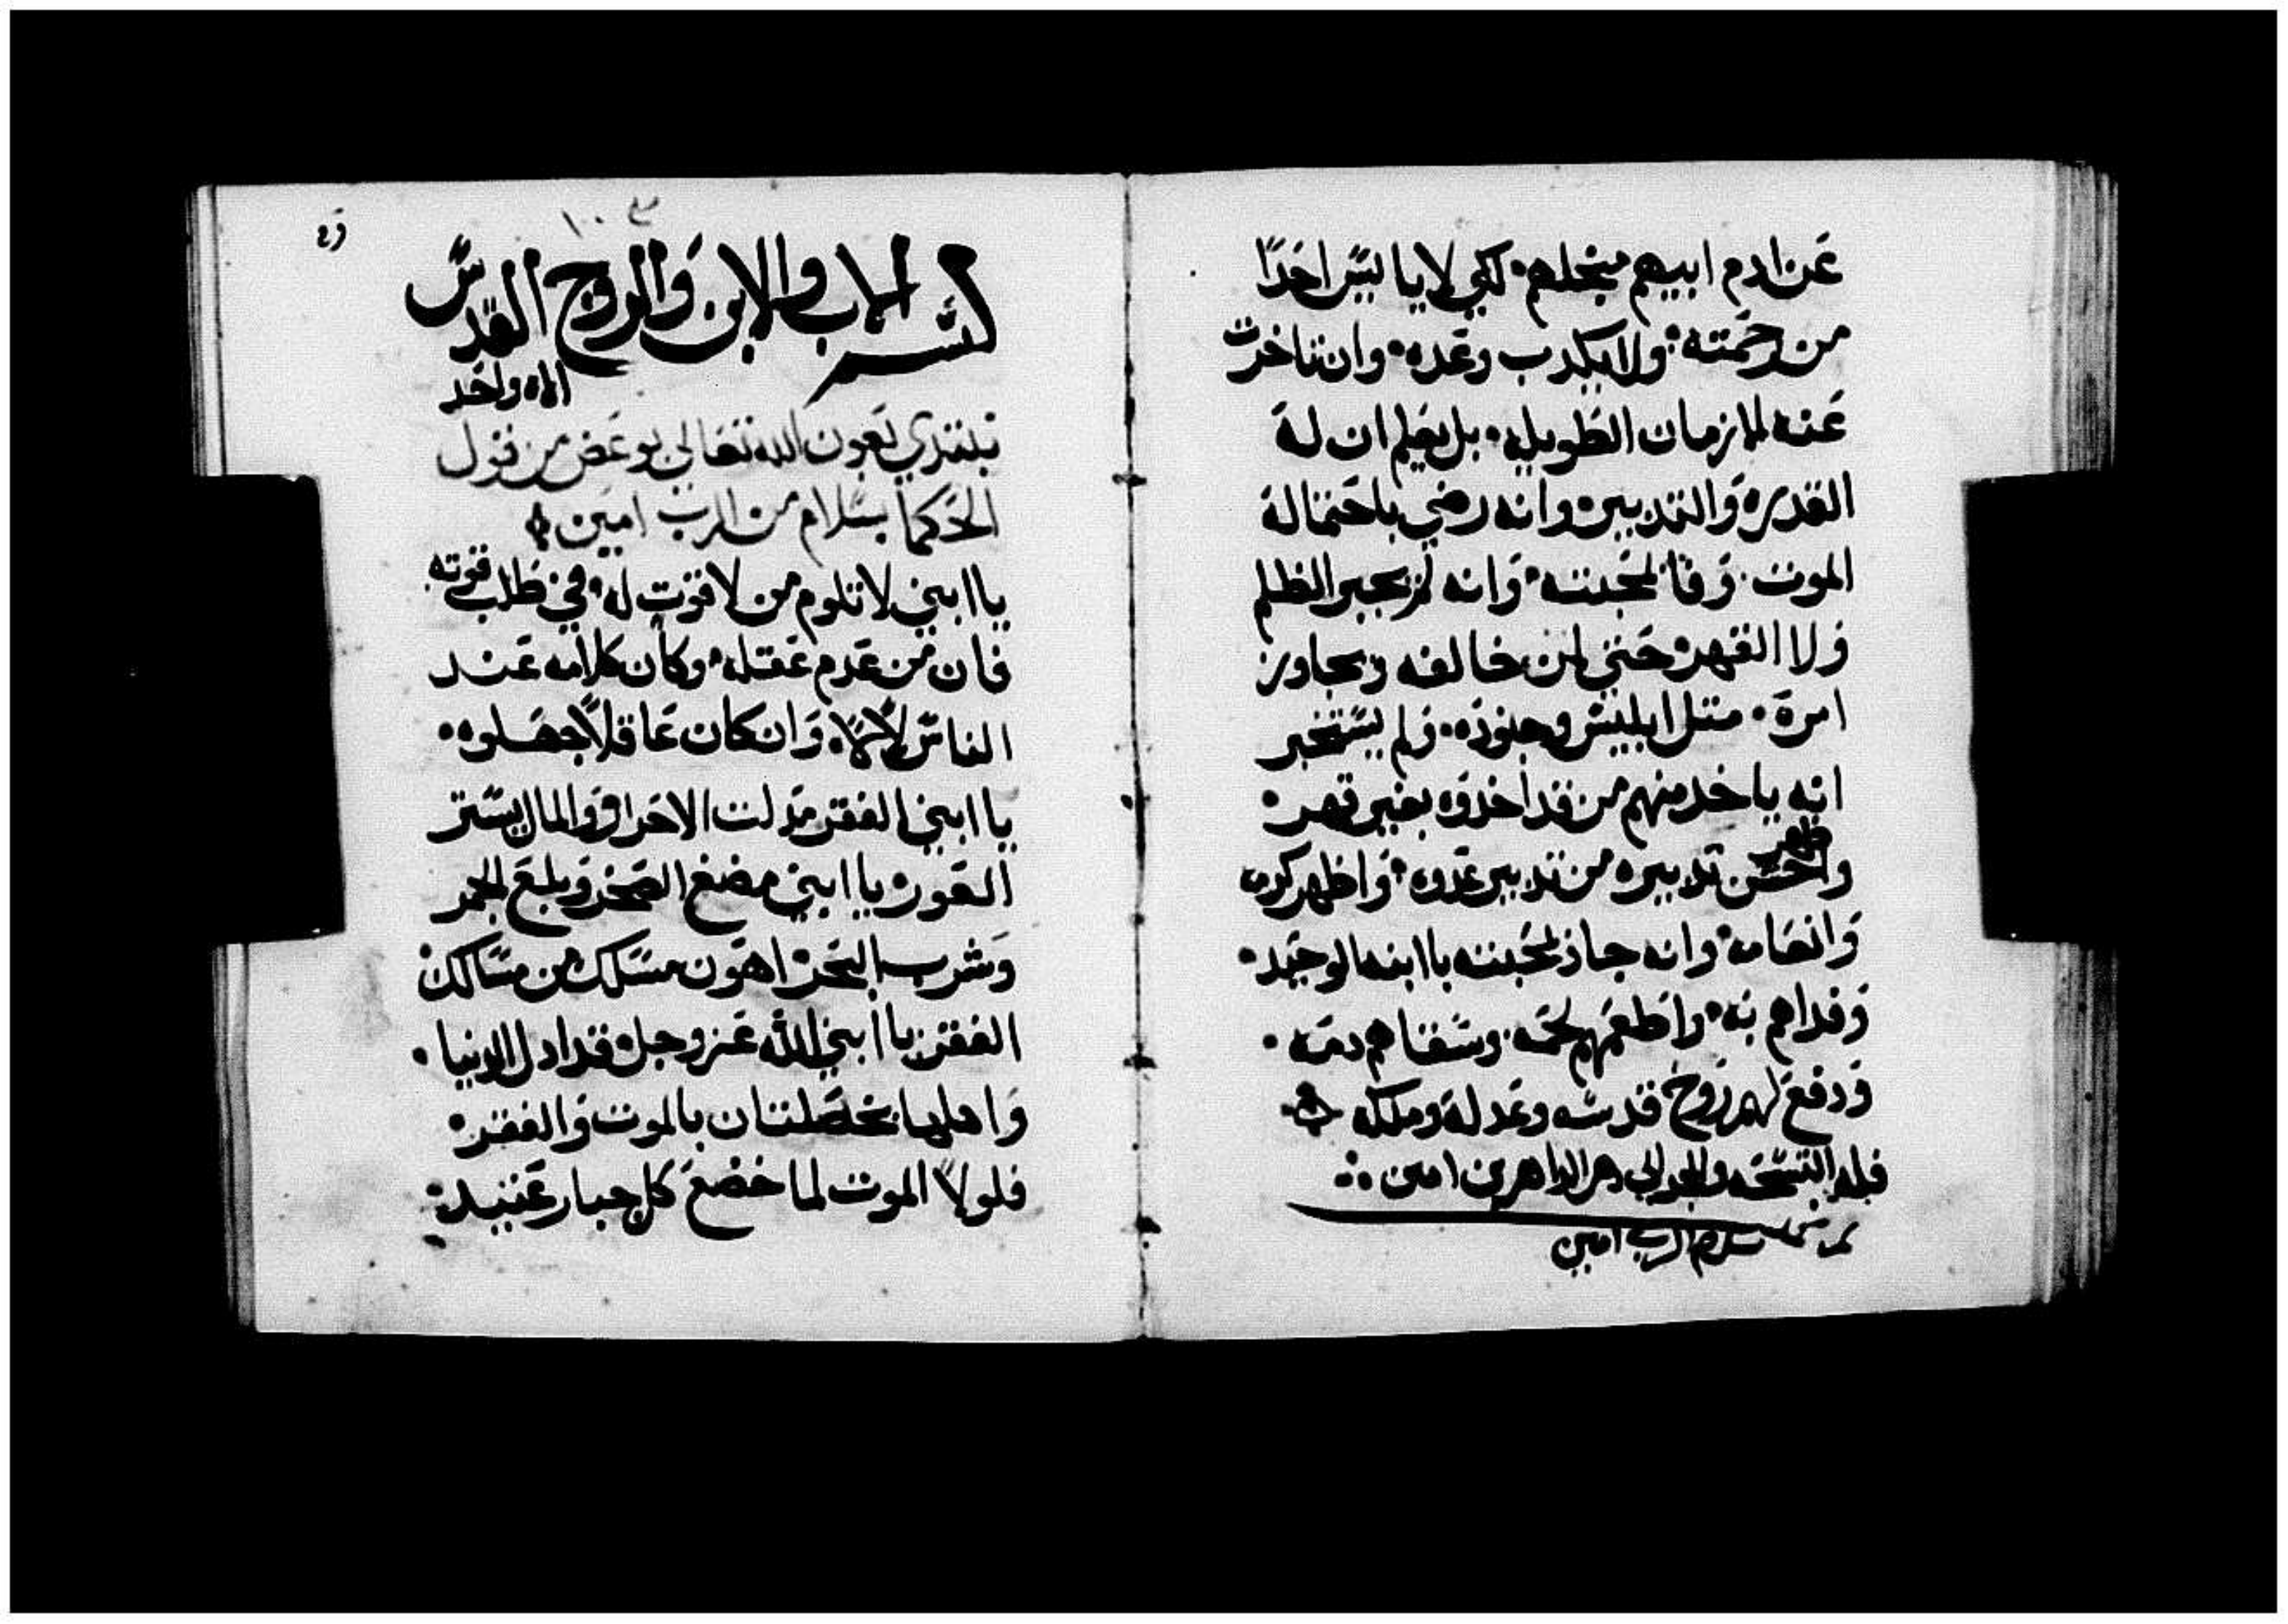 عن ادم ابيهم منجلهم لكي لا يايس احدًا
من رحمته ولا يكدب وعده وان تاخرت
عنه الازمان الطويله بل يعلم ان له
القدره والتدبير وانه رضي باحتماله
الموت وفا لمحبته وانه لم يجير الظلم
ولا القهر حتي لمن خالفه وتجاوز
امره متل ابليس وجنوده ولم يستخير
انه ياخد منهم من قد اخدوه بغير قهر
واظهر حسن تدبيره من تدبير عدوه واظهر كرمه
وانصافه وانه جاد لمحبته باابنه الوحيد
وفداهم به واطعمهم لحمه وسقاهم دمه
ودفع لهم روح قدسه وعدله وملكه
فله التسبحه والمجد الي دهر الداهرين امين
سلام الرب امين
بسم الاب والابن والروح القدس
الاه واحد
نبتدي بعون الله تعالي بوعض من قول
الحكما بسلام من الرب امين
ياابني لا تلوم من لا قوت له في طلب قوته
فان من عدم عقله وكان كلامه عند
الناس وان كان عاقلًا جهلوه
ياابني الفقر مدلت الاحرار والمال يستر
العورة ياابني مضغ الصخر وبلع الجمر
وشرب البحر اهون مسلك من مسالك
الفقر ياابني الله عز وجل قد ادل الدنيا
واهلها بخصلتان بالموت والفقر
فلولا الموت لما خضع كل جبار عنيد